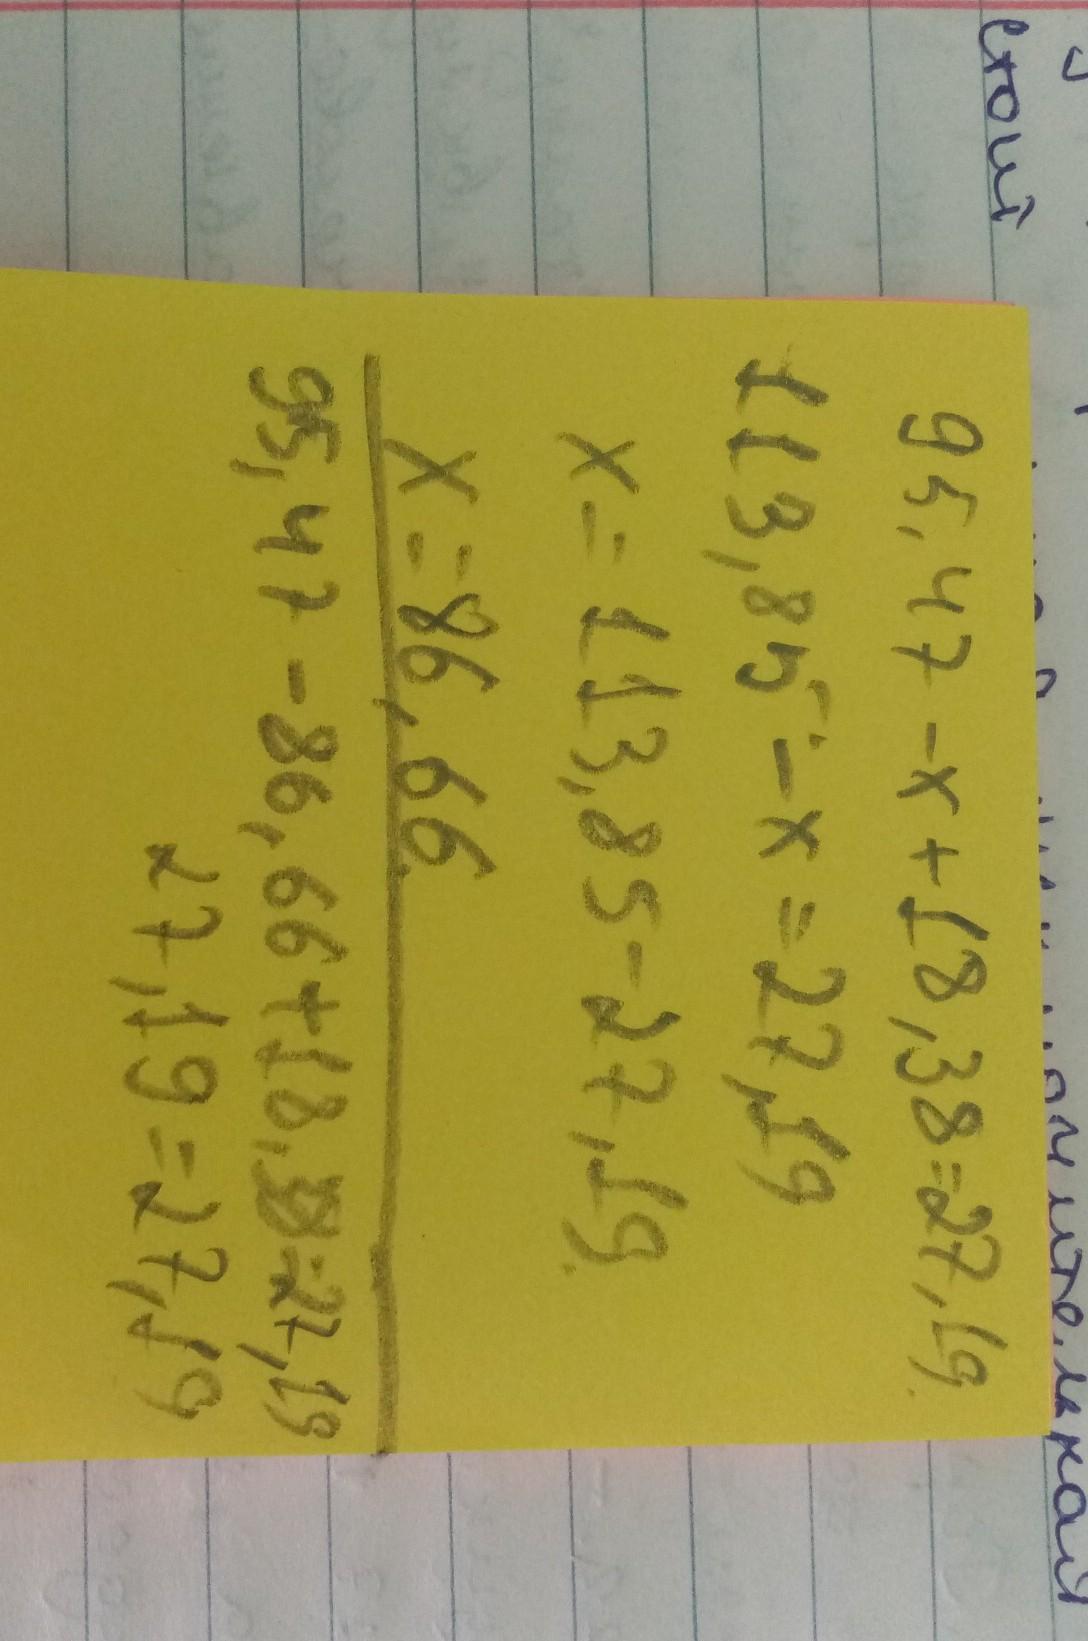 стоит
95,47-x+18,38=27,19
113,85-x=27,19
x=113,85-27,19
x=86,66
95,47-86,66+18,38=27,19
27,19=27,19